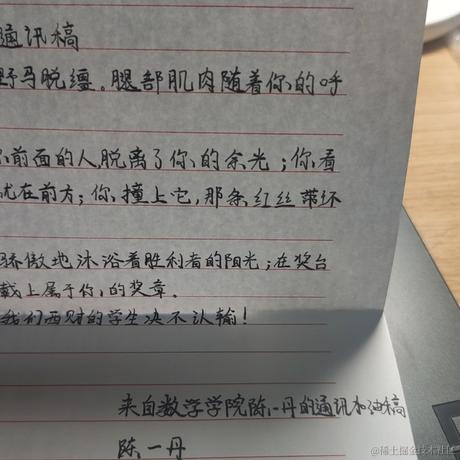 通讯稿
野马脱缰。腿部肌肉随着你的呼
前面的人脱离了你的余光；你看
就在前方；你撞上它，那条红丝带环
骄傲地沐浴着胜利者的阳光；在奖台
戴上属于你的奖章。
我们西财的学生决不认输！
来自数学学院陈一丹的通讯加油稿
陈一丹
@稀土掘金技术社区